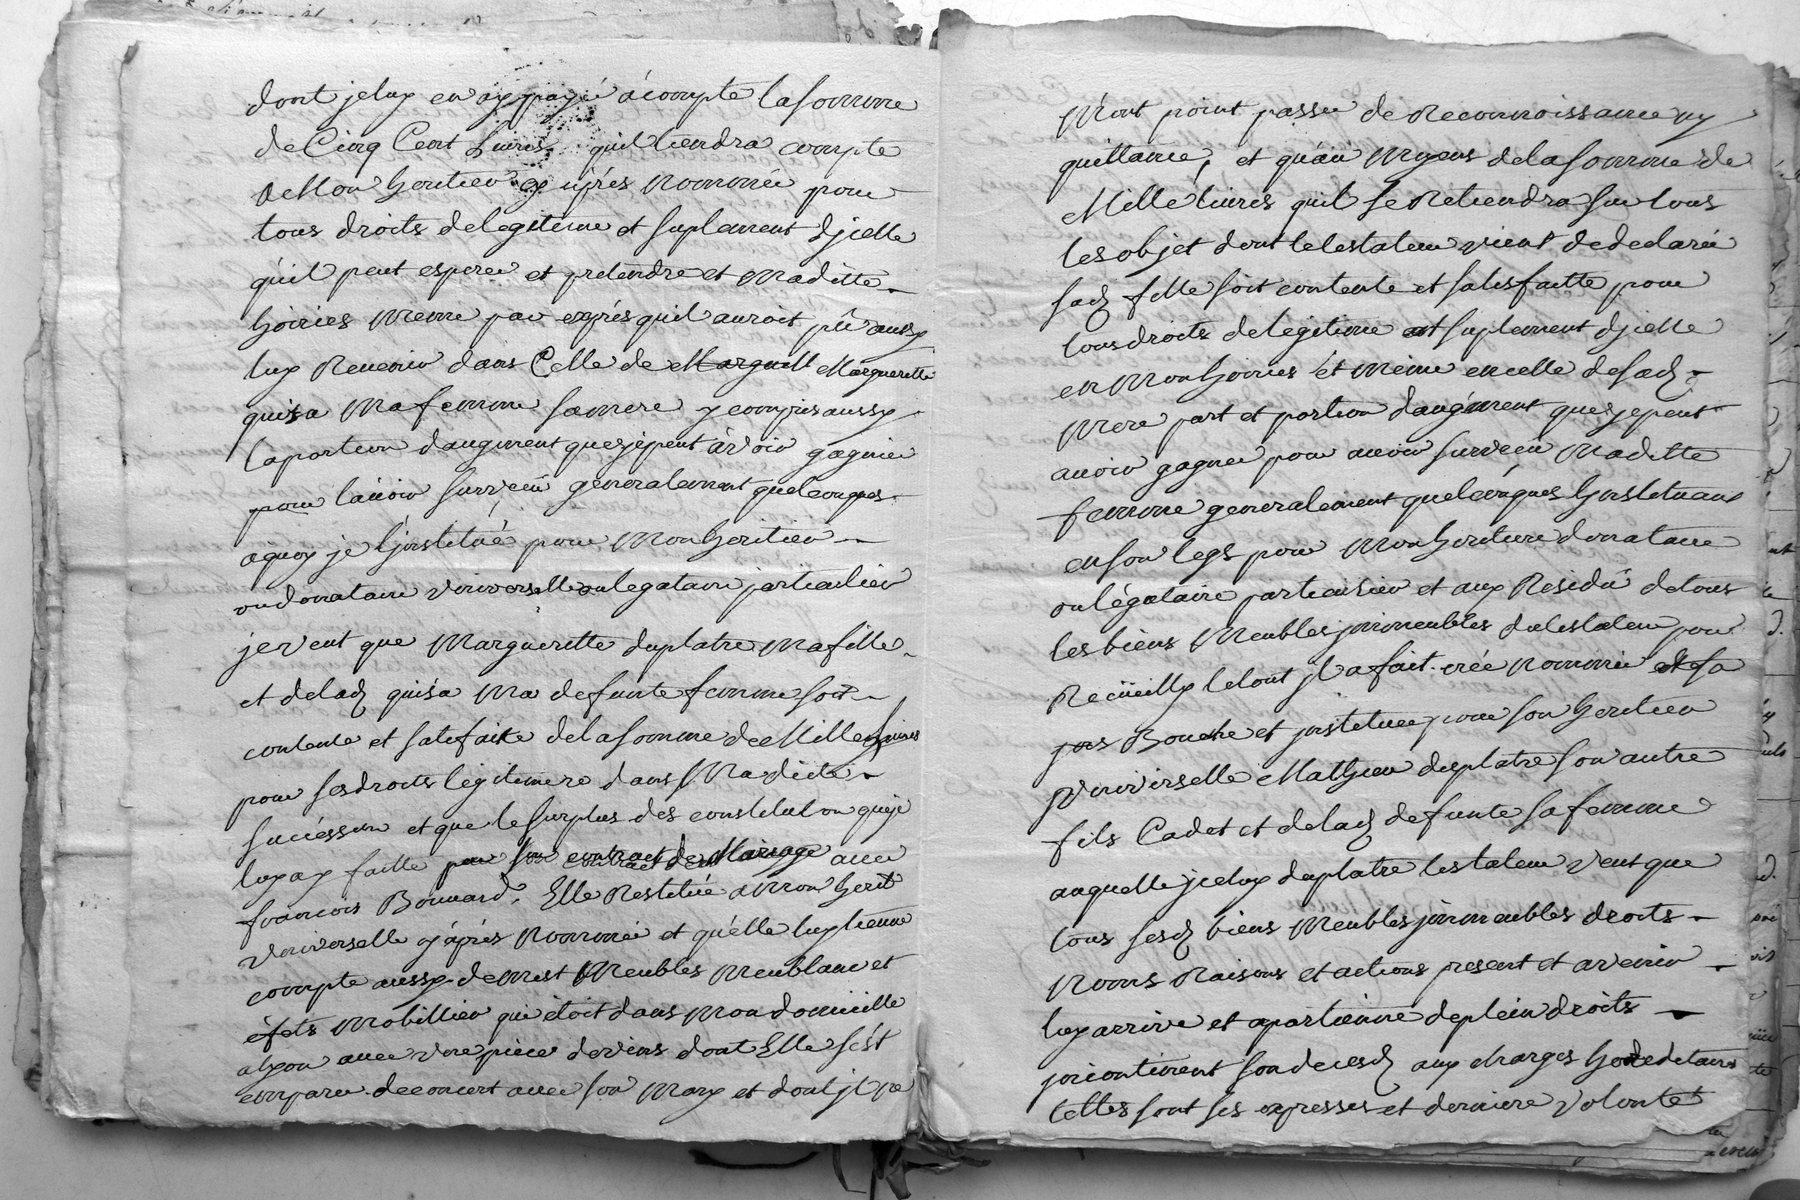 dont je luy en ay payé à compte la somme
de Cinq Cent Livres quil tiendra compte
à Mon heritier cy après Nommée pour
tous droits de legitime et suplement djcelle
qu'il peut esperer et pretendre et Maditte
hoiries Meme par exprés quil auroit pû aussy
luy Revenir dans Celle de Marguerite
quisa Ma femme sa mere y compris aussy
la portion d'augment que je peut avoir gagnée
pour lavoir survecû generalement quelconques
a quoy je l'jnstitué pour Mon heritier
ou donataire Vniverselle ou legataire particulier
je veut que Margueritte duplatre Ma fille
et de lad quisa Ma defunte femme soit
contente et satisfaite de la somme de Mille Livres
pour ses droits légitimere dans Madicte
succession et que le surplus des constitution que je
luy ay faitte par son contract de Mariage avec
francois Bonnard, Elle Restitüe a Mon herit
Vniverselle cy après Nommée et qu'elle luy tienne
compte aussy de Mest Meubles Meublant et
éfets Mobillier qui étoit dans Mon domicille
a lyon avec vne piece de vins dont Elle s'est
emparé de concert avec son Mary et dont jl ne
M'ont point passée de Reconnoissance ny
quittance, et qu'au Moyens de la somme de
Mille livres quil se Retiendra sur tous
les objet dont le testateur vient de declarée
sad fille soit contente et satisfaitte pour
tous droits de legitime et suplement djcelle
en Mon hoiries et Même en celle de sad
Mere part et portion d'augment que je peut
avoir gagnée pour avoir survecû Maditte
femme generalement quelconques Jnstituant
en son legs pour Mon heritiere donataire
ou légataire particulier et aux Residû de tous
les biens Meubles jmmeubles du testateur pour
Recüeilly le tout jl a fait créé Nommée et sa
pres Bouche et jnstituee pour son heritier
Vniverselle Mathieu duplatre son autre
fils Cadet et de lad defunte sa femme
auquelle jceluy duplatre testateur veut que
tous sesd biens Meubles jmmeubles droits
Noms Raisons et actions present et avenir
luy arrive et apartienne de plein droits
jncontinent son decesd aux charges hereditaires
telles sont ses expresses et derniere volonté